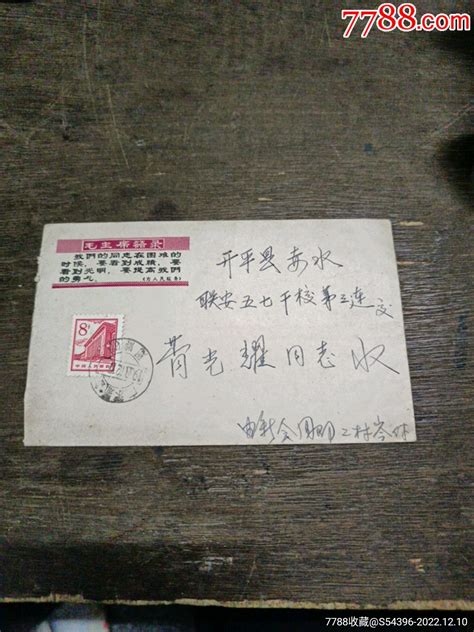 7788.com
毛主席語录
我們的同志在困难的
时候，要看到成績，要
看到光明，要提高我們
的勇气。
《为人民服务》
8分
中国人民邮政
开平县赤水
联安五七干校第三连交
光耀同志收
由新会
7788收藏@S54396-2022.12.10